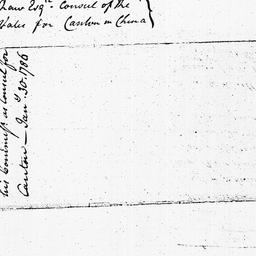 Shaw Esqr. Consul of the
States for Canton in China
his business as Consul for
Canton - Jany. 30. 1786